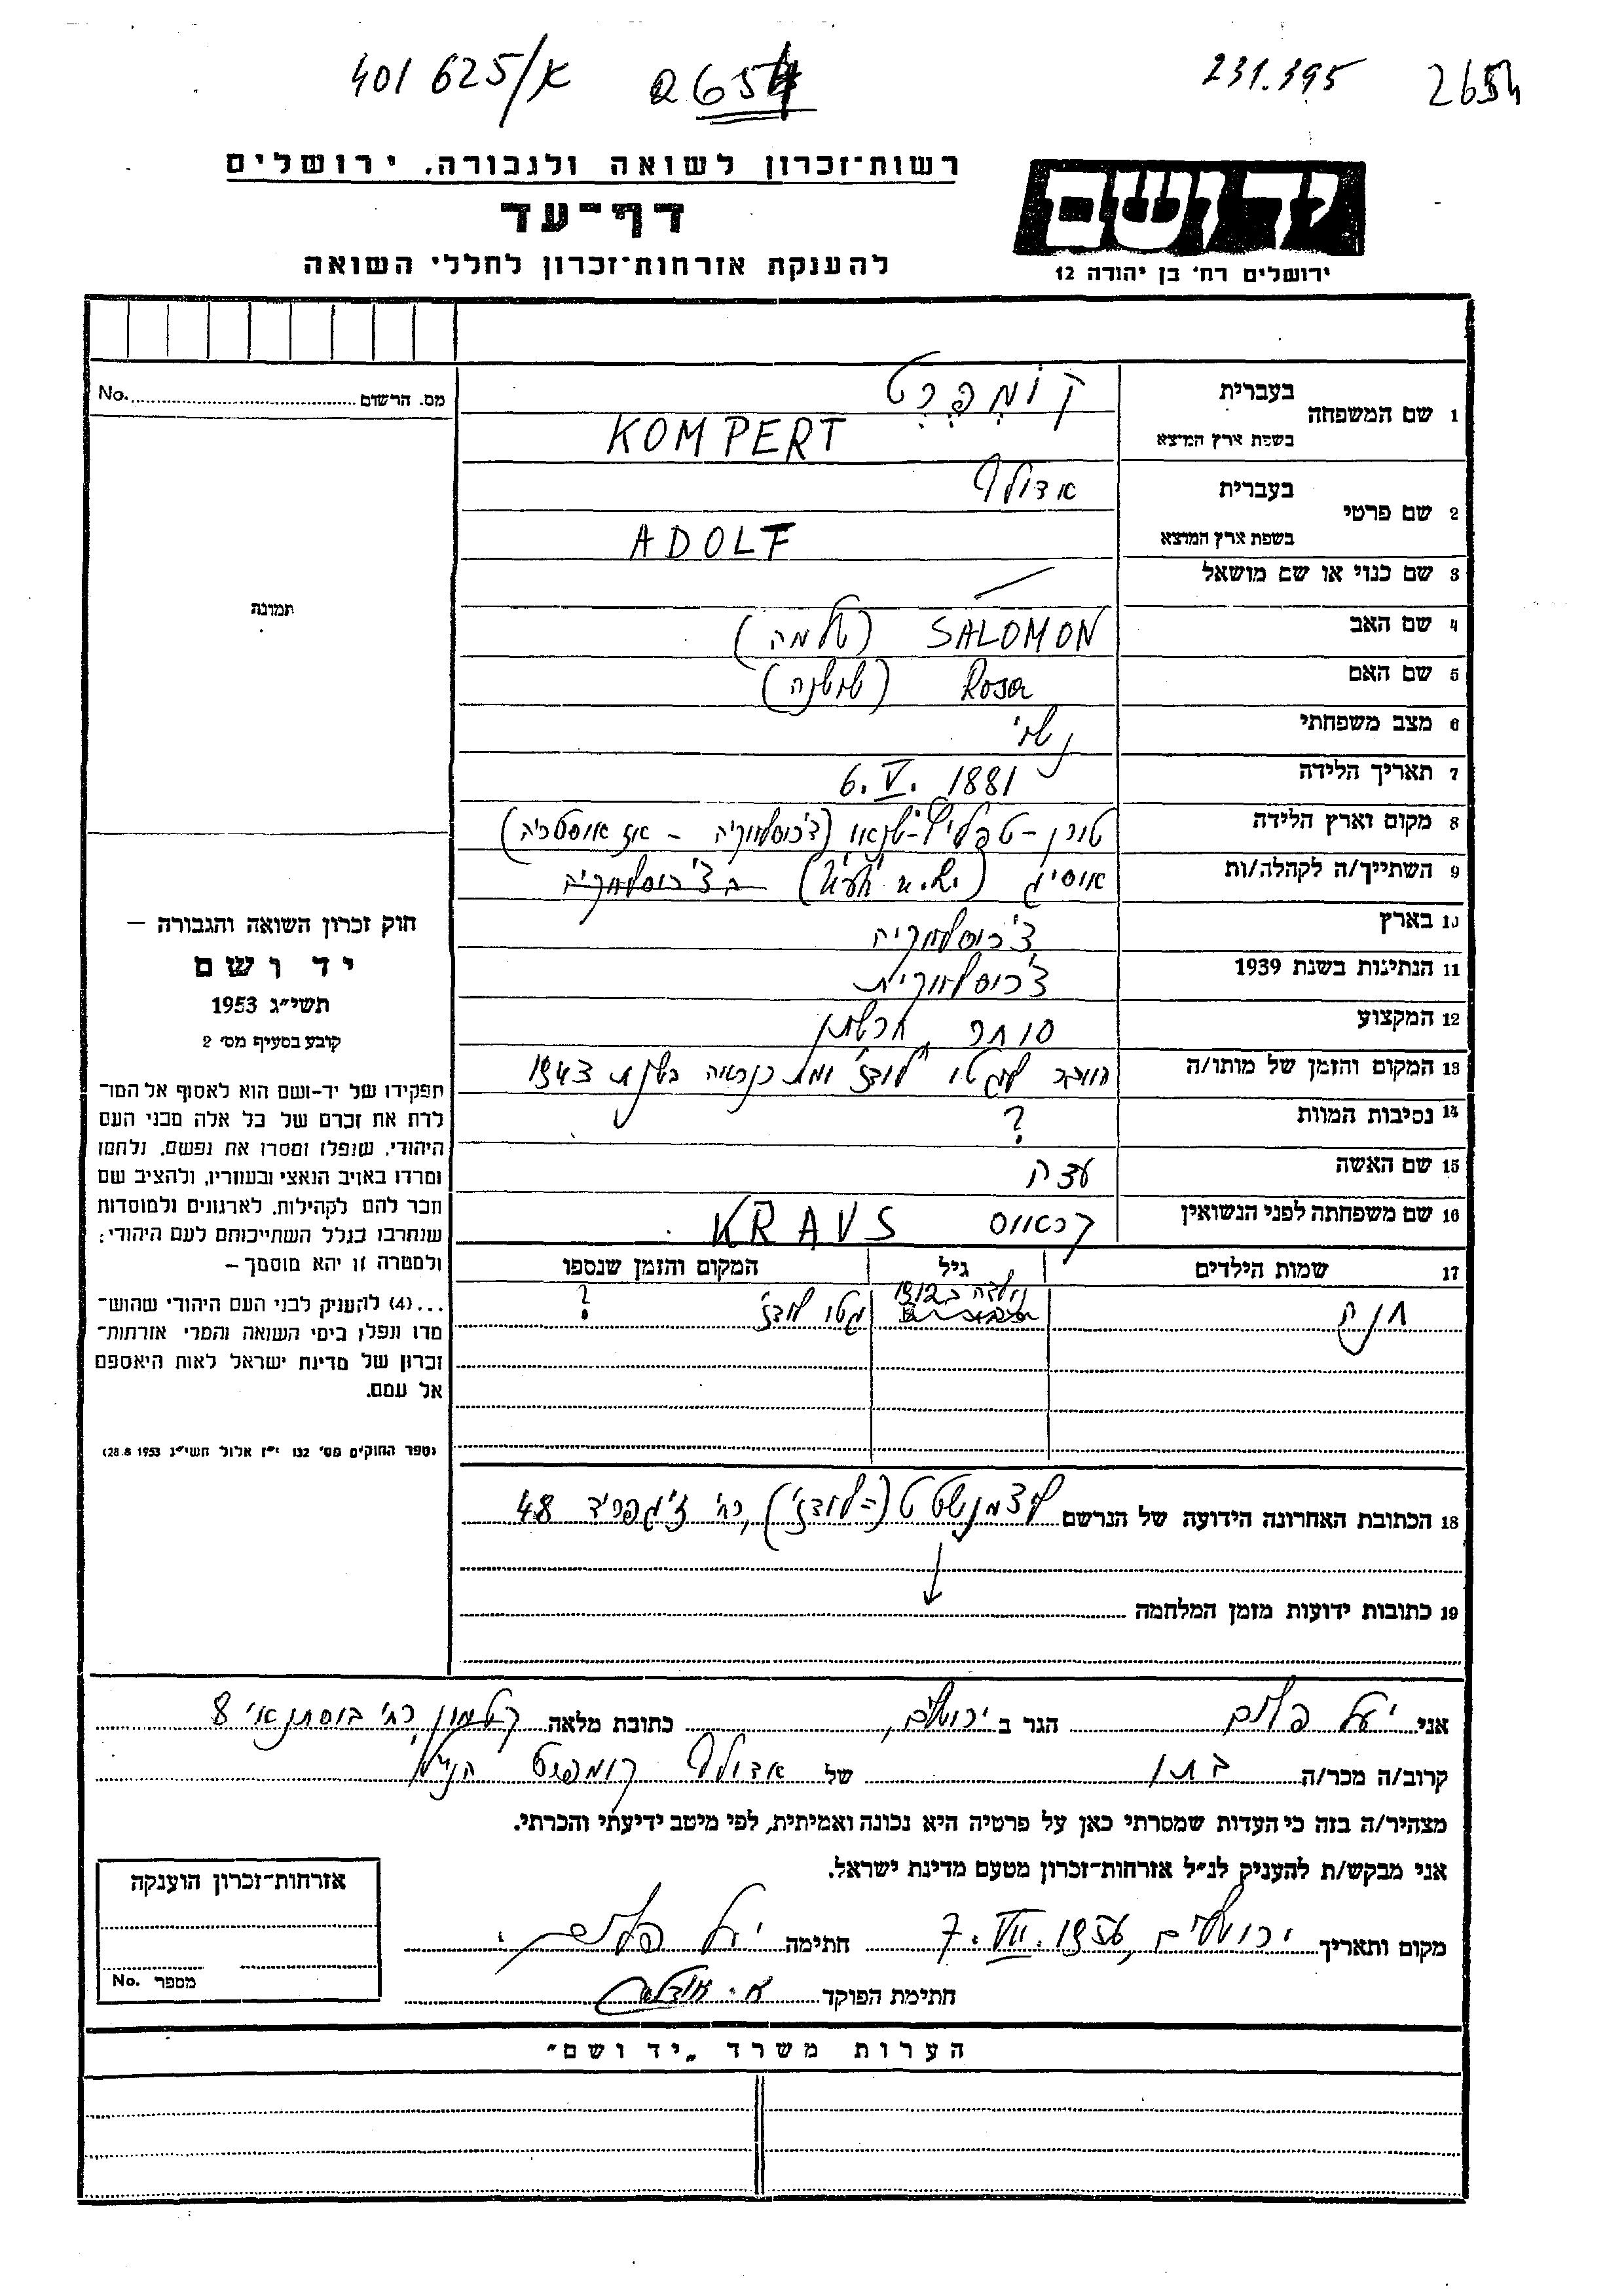 401 625/א 2654 231.395 2654
רשות־זכרון לשואה ולגבורה, ירושלים
דף־עד
להענקת אזרחות־זכרון לחללי השואה
יד ושם
ירושלים רח' בן יהודה 12
מס. הרשום No.
1 שם המשפחה בעברית קוֹמְפֶּרְט
בשפת ארץ המוצא KOMPERT
2 שם פרטי בעברית אדולף
בשפת ארץ המוצא ADOLF
תמונה
3 שם כנוי או שם מושאל —
4 שם האב SALOMON (שלמה)
5 שם האם Rosa (שושנה)
6 מצב משפחתי נשוי
7 תאריך הלידה 6. V. 1881
8 מקום וארץ הלידה טורן-טפליץ-שנאו (צ'כוסלובקיה - אז אוסטריה)
9 השתייך/ה לקהלה/ות אוסיג בצ'כוסלובקיה
10 בארץ צ'כוסלובקיה
11 הנתינות בשנת 1939 צ'כוסלובקית
12 המקצוע סוחר
13 המקום והזמן של מותו/ה הועבר לגטו לודז' ומת כנראה בשנת 1943
14 נסיבות המוות ?
15 שם האשה עדה
16 שם משפחתה לפני הנשואין קראוס KRAVS
17 שמות הילדים גיל המקום והזמן שנספו
נולדה ב 1912 גטו לודז' ?
חוק זכרון השואה והגבורה —
יד ושם
תשי"ג 1953
קובע בסעיף מס' 2
תפקידו של יד־ושם הוא לאסוף אל המו־
לדת את זכרם של כל אלה מבני העם
היהודי, שנפלו ומסרו את נפשם, נלחמו
ומרדו באויב הנאצי ובעוזריו, ולהציב שם
וזכר להם לקהילות, לארגונים ולמוסדות
שנחרבו בגלל השתייכותם לעם היהודי;
ולמטרה זו יהא מוסמך —
...(4) להעניק לבני העם היהודי שהוש־
מדו ונפלו בימי השואה והמרי אזרחות־
זכרון של מדינת ישראל לאות היאספם
אל עמם.
(ספר החוקים מס' 132 י"ז אלול תשי"ג 28.8.1953)
18 הכתובת האחרונה הידועה של הנרשם ליצמנשטט (=לודז'), רח' זיגפריד 48
19 כתובות ידועות מזמן המלחמה
אני יעל הגר ב ירושלים, כתובת מלאה קטמון, רח' בוסתנאי 8
קרוב/ה מכר/ה בתו של אדולף קומפרט הנ"ל
מצהיר/ה בזה כי העדות שמסרתי כאן על פרטיה היא נכונה ואמיתית, לפי מיטב ידיעתי והכרתי.
אני מבקש/ת להעניק לנ"ל אזרחות־זכרון מטעם מדינת ישראל.
מקום ותאריך ירושלים, 7. VII. 1956 חתימה יעל
חתימת הפוקד
אזרחות־זכרון הוענקה
מספר No.
הערות משרד „יד ושם"